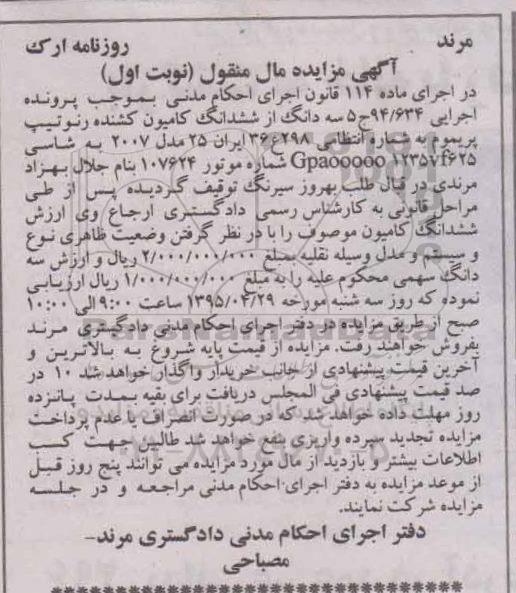 مرند
روزنامه ارک
آگهی مزایده مال منقول (نوبت اول)
در اجرای ماده ۱۱۴ قانون اجرای احکام مدنی بموجب پرونده
اجرایی ۹۴/۶۳۴ج۵ سه دانگ از ششدانگ کامیون کشنده رنوتیپ
پریموم به شماره انتظامی ۲۹۸ع۳۶ ایران ۲۵ مدل ۲۰۰۷ به شاسی
Gpaooooo ۱۲۳۵vf۶۲۵ شماره موتور ۱۰۷۶۲۴ بنام جلال بهزاد
مرندی در قبال طلب بهروز سیرنگ توقیف گردیده پس از طی
مراحل قانونی به کارشناس رسمی دادگستری ارجاع وی ارزش
ششدانگ کامیون موصوف را با در نظر گرفتن وضعیت ظاهری نوع
و سیستم و مدل وسیله نقلیه بمبلغ ۲/۰۰۰/۰۰۰/۰۰۰ ریال و ارزش سه
دانگ سهمی محکوم علیه را به مبلغ ۱/۰۰۰/۰۰۰/۰۰۰ ریال ارزیابی
نموده که روز سه شنبه مورخه ۱۳۹۵/۰۴/۲۹ ساعت ۹:۰۰ الی ۱۰:۰۰
صبح از طریق مزایده در دفتر اجرای احکام مدنی دادگستری مرند
بفروش خواهند رفت. مزایده از قیمت پایه شروع به بالاترین و
آخرین قیمت پیشنهادی از جانب خریدار واگذار خواهد شد ۱۰ در
صد قیمت پیشنهادی فی المجلس دریافت برای بقیه بمدت پانزده
روز مهلت داده خواهد شد که در صورت انصراف یا عدم پرداخت
مزایده تجدید سپرده واریزی بنفع خواهد شد طالبین جهت کسب
اطلاعات بیشتر و بازدید از مال مورد مزایده می توانند پنج روز قبل
از موعد مزایده به دفتر اجرای احکام مدنی مراجعه و در جلسه
مزایده شرکت نمایند.
دفتر اجرای احکام مدنی دادگستری مرند-
مصباحی
ParsNamadData